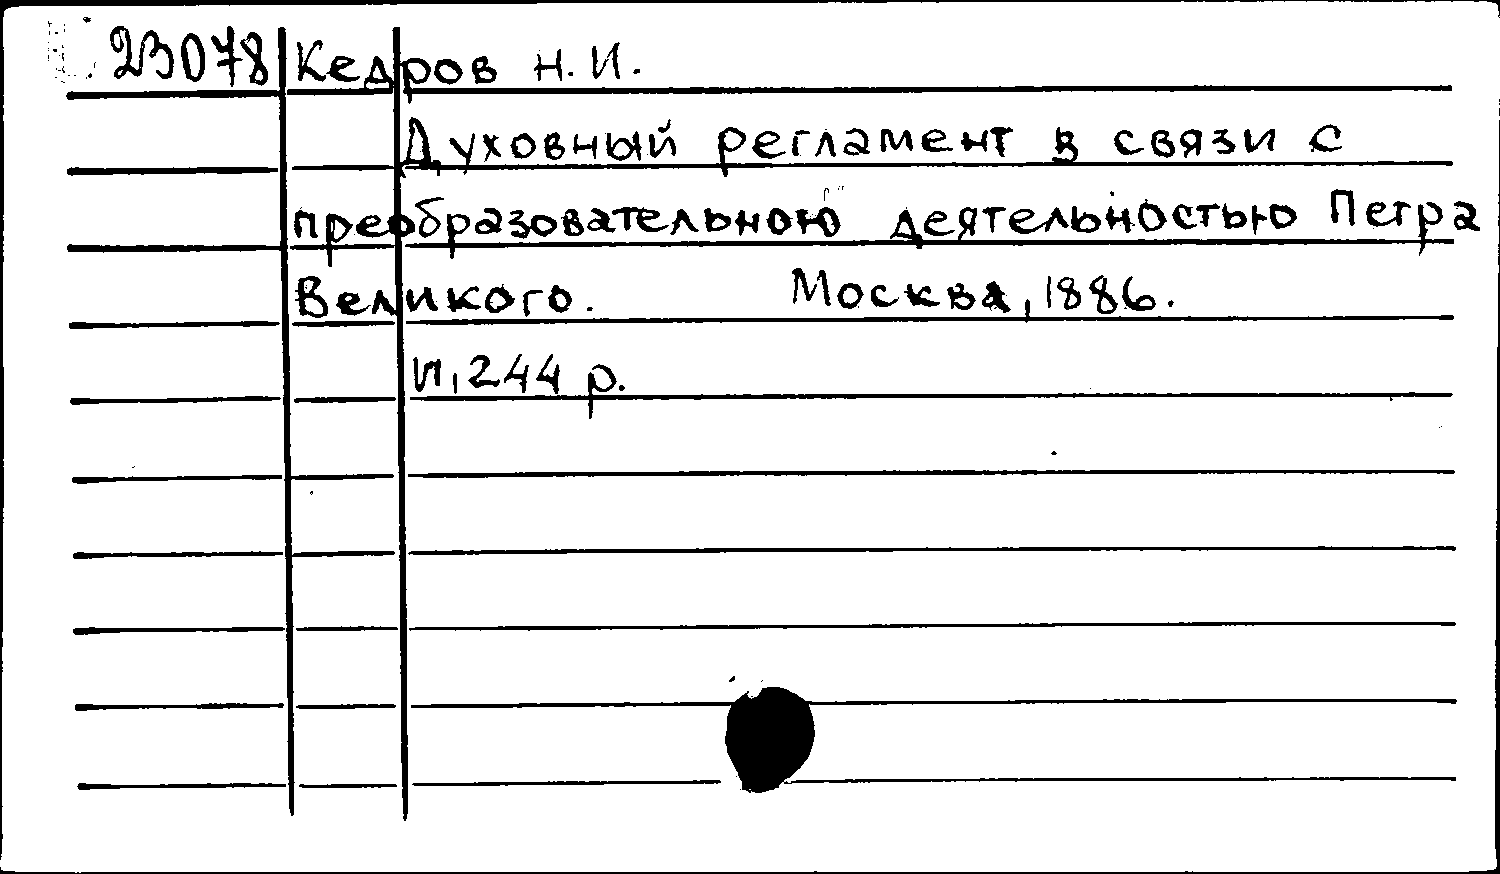 23078 Кедров Н.И.
Духовный регламент в связи с
преобразовательною деятельностью Петра
Великого. Москва, 1886.
и, 244 р.